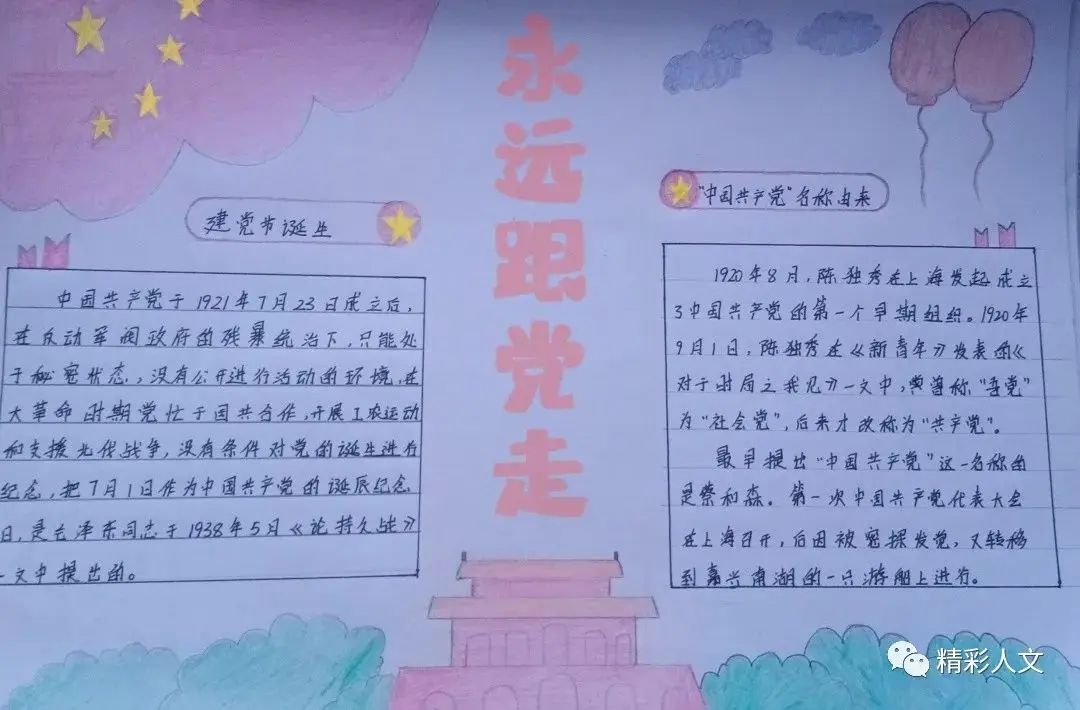 永远跟党走
建党节诞生
中国共产党于1921年7月23日成立后,
在反动军阀政府的残暴统治下,只能处
于秘密状态,没有公开进行活动的环境,在
大革命时期党忙于国共合作,开展工农运动
和支援北伐战争,没有条件对党的诞生进行
纪念,把7月1日作为中国共产党的诞辰纪念
日,是毛泽东同志于1938年5月《论持久战》
一文中提出的。
“中国共产党”名称由来
1920年8月,陈独秀在上海发起成立
了中国共产党的第一个早期组织。1920年
9月1日,陈独秀在《新青年》发表的《
对于时局之我见》一文中,曾称“吾党”
为“社会党”,后来才改称为“共产党”。
最早提出“中国共产党”这一名称的
是蔡和森。第一次中国共产党代表大会
在上海召开,后因被密探发觉,又转移
到嘉兴南湖的一只游船上进行。
精彩人文